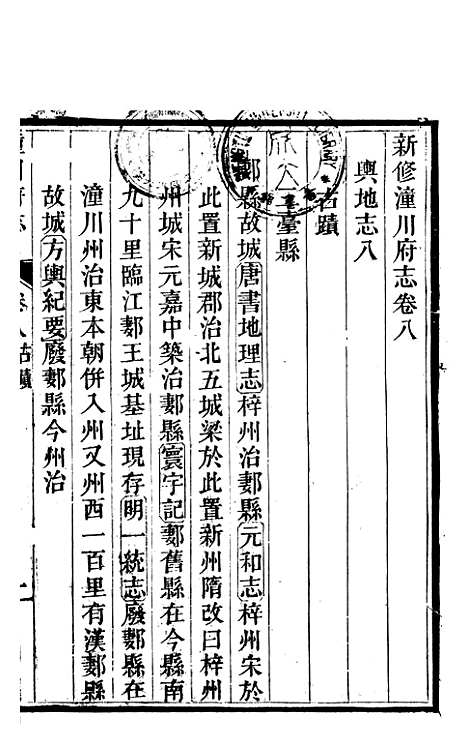 新修潼川府志卷八
輿地志八
古蹟
臺縣
郪縣故城唐書地理志梓州治郪縣元和志梓州宋於
此置新城郡治北五城梁於此置新州隋改曰梓州
州城宋元嘉中築治郪縣寰宇記郪舊縣在今縣南
九十里臨江郪王城基址現存明一統志廢郪縣在
潼川州治東本朝併入州又州西一百里有漢郪縣
故城方輿紀要廢郪縣今州治